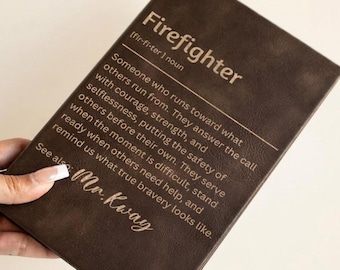 Firefighter
[fīr-fī-ter] noun
Someone who runs toward what
others run from. They answer the call
with courage, strength, and
selflessness, putting the safety of
others before their own. They serve
when the moment is difficult, stand
ready when others need help, and
remind us what true bravery looks like.
See also: Mr. Kway